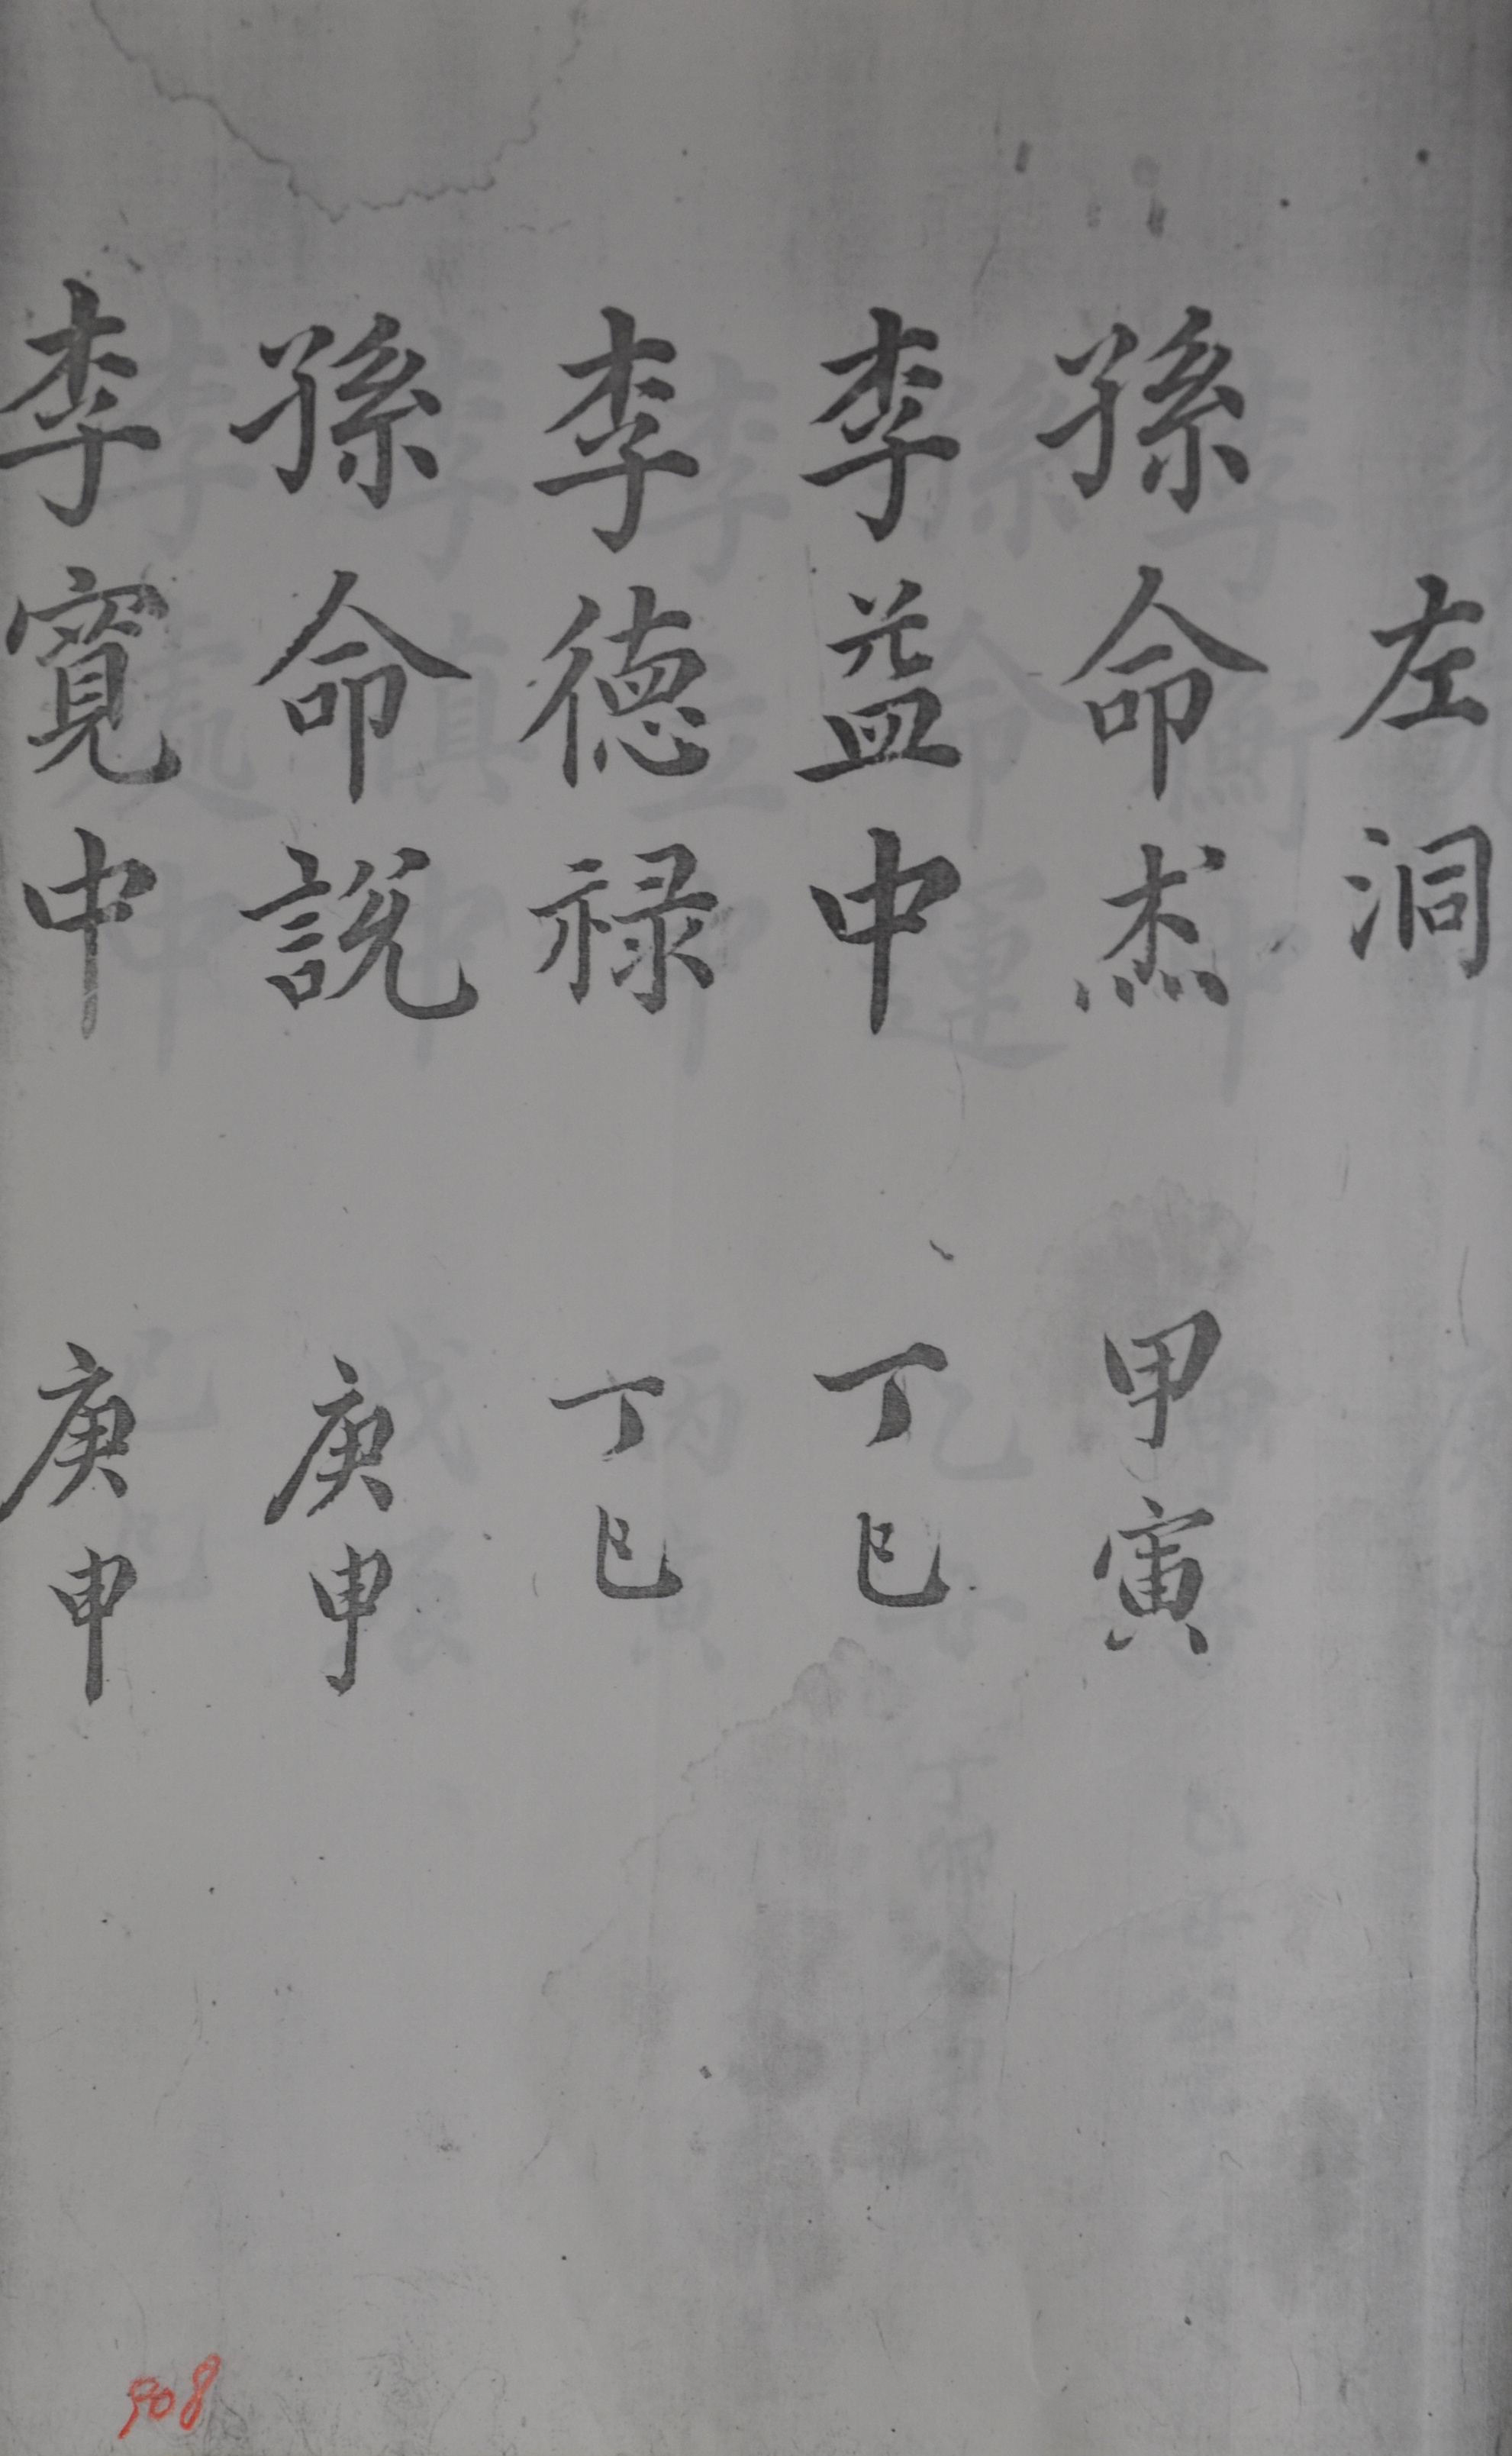 左洞
孫命杰 甲寅
李益中 丁巳
李德禄 丁巳
孫命説 庚申
李寬中 庚申
908